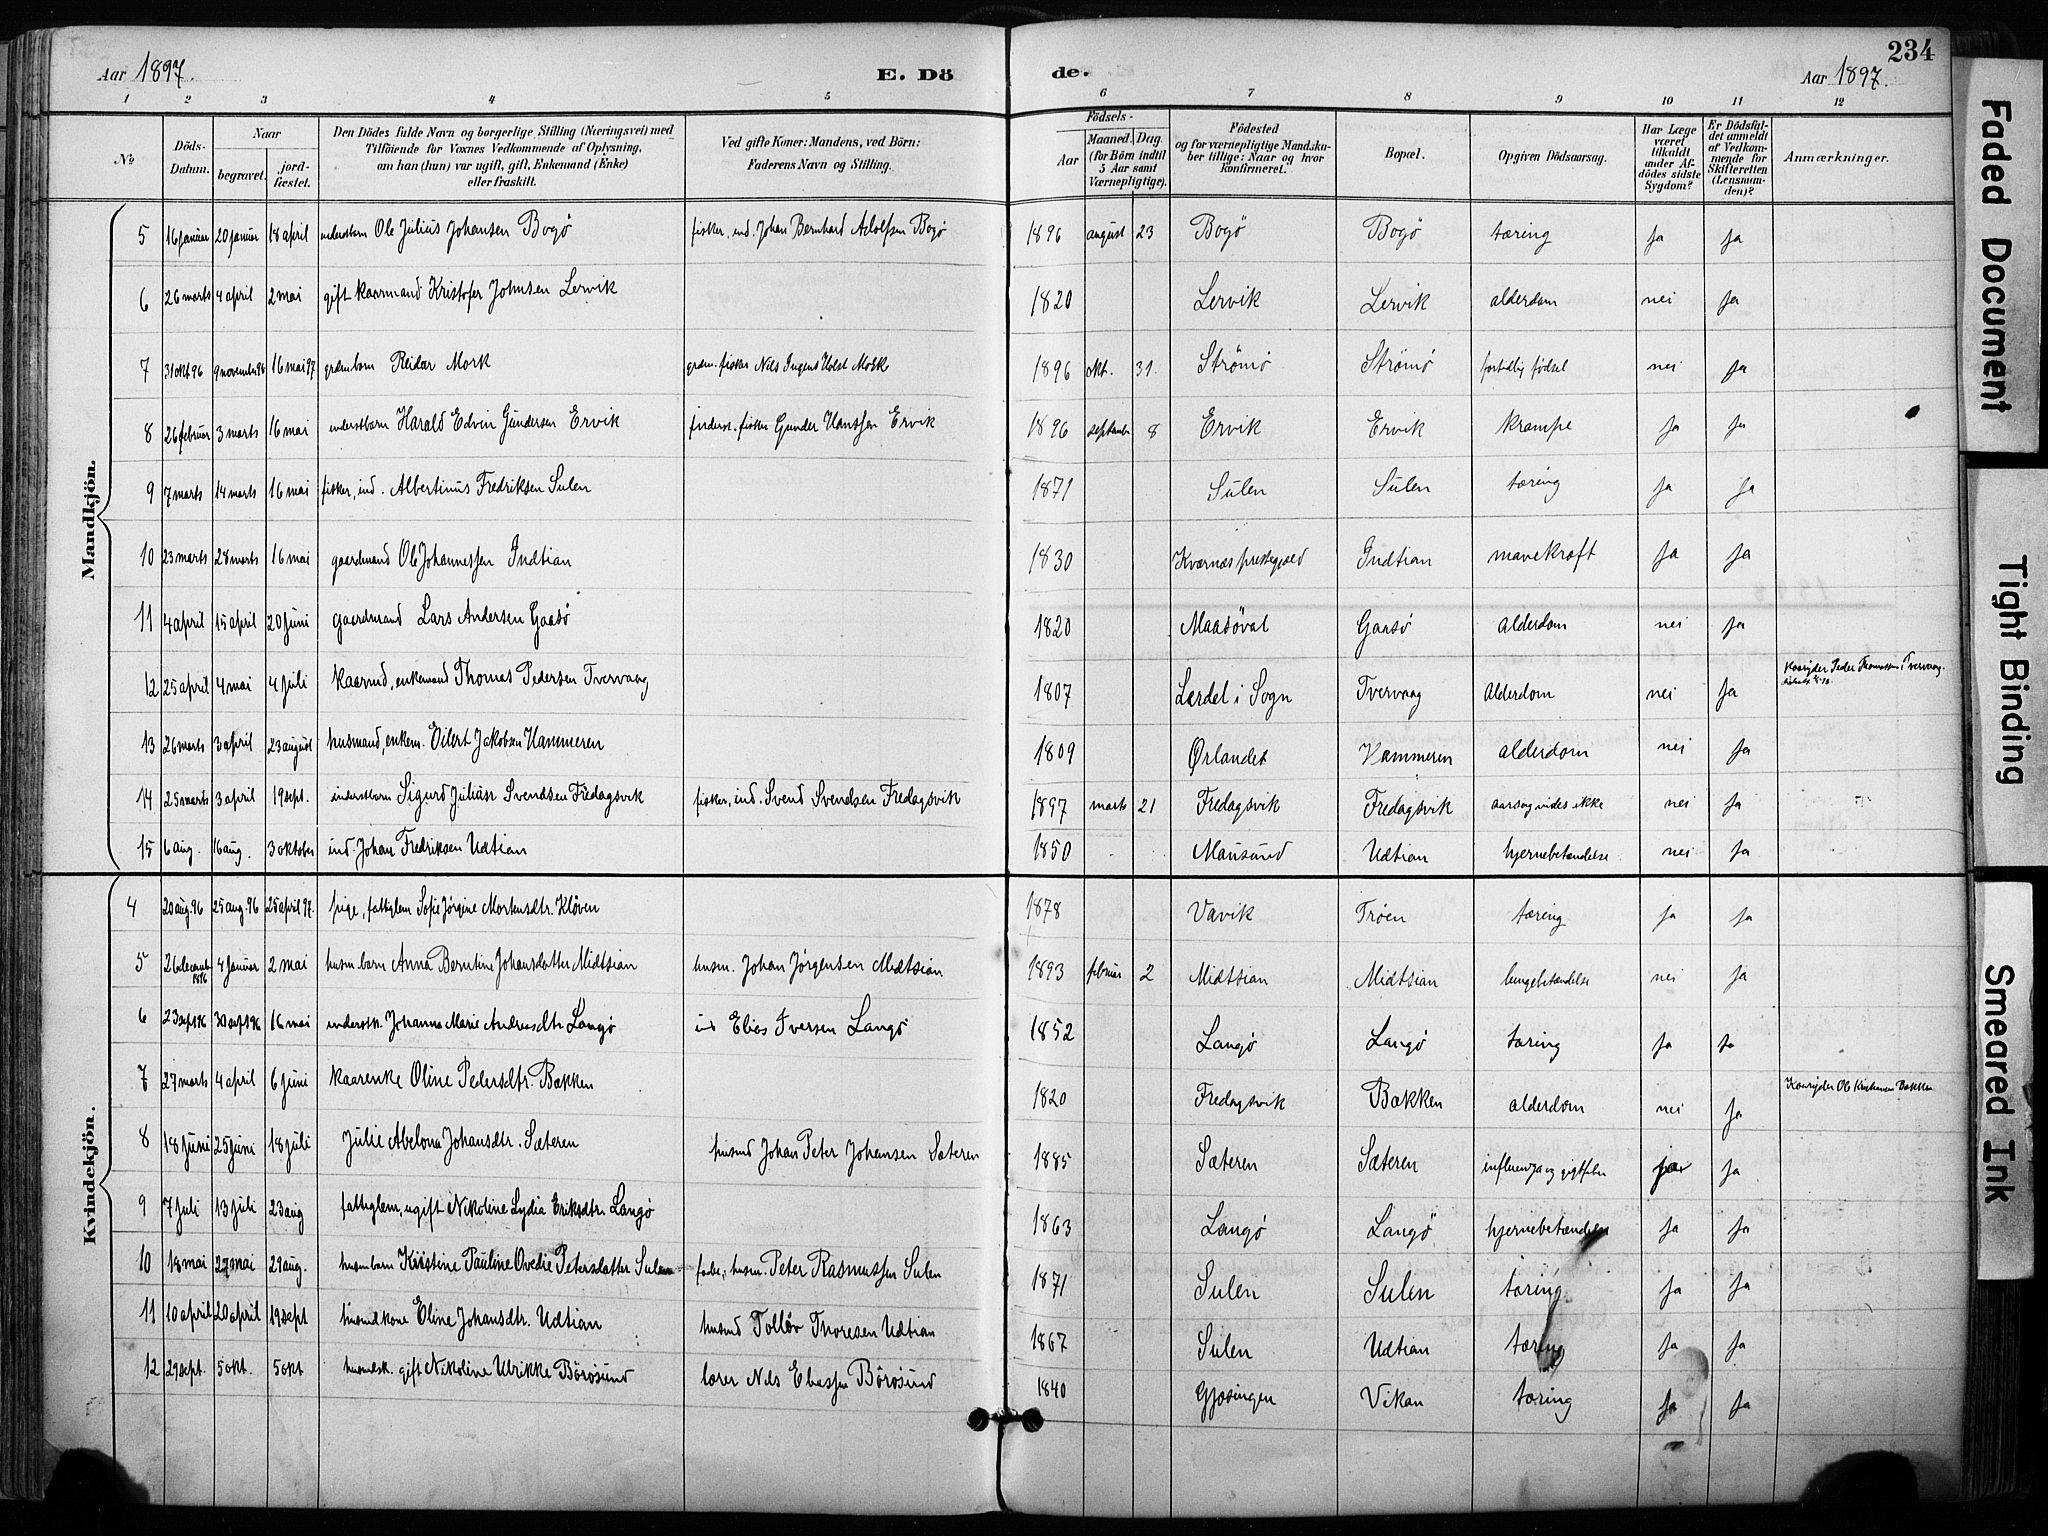 Aar 1897.
E. Dö
de.
Aar 1897.
234
1 2 3 4 5 6 7 8 9 10 11 12
No
Döds-Datum.
Naar
begravet.
jord-fæstet.
Den Dödes fulde Navn og borgerlige Stilling (Næringsvei) med
Tilföiende for Voxnes Vedkommende af Oplysning,
om han (hun) var ugift, gift, Enkemand (Enke)
eller fraskilt.
Ved gifte Koner: Mandens, ved Börn:
Faderens Navn og Stilling.
Födsels-
Aar
Maaned.
Dag
(for Börn indtil
5 Aar samt
Værnepligtige).
Födested
og for værnepligtige Mandsku-
ber tillige: Naar og hvor
konfirmeret.
Bopæl.
Opgiven Dödsaarsag.
Har Læge
været
tilkaldt
under Af-
dödes sidste
Sygdom?
Er Dödsfal-
det anmeldt
af Vedkom-
mende for
Skifteretten
(Lensman-
den)?
Anmærkninger.
Mandkjön.
5 16 januar 20 januar 18 april inderstbarn Ole Julius Johansen Bogø fisker, ind. Johan Bernhard Adolfsen Bogø 1896 august 23 Bogø Bogø tæring ja ja
6 26 marts 4 april 2 mai gift kaarmand Kristofer Johnsen Lervik 1820 Lervik Lervik alderdom nei ja
7 31 okt 96 9 november 96 16 mai 97 grdmbarn Reidar Mork grdm. fisker Nils Ingens Holst Mork 1896 okt. 31. Strömö Strömö fortidlig födsel nei ja
8 26 februar 3 marts 16 mai inderstbarn Harald Edvin Gundersen Ervik inderst. fisker Gunder Hanssen Ervik 1896 september 8 Ervik Ervik krampe ja ja
9 7 marts 14 marts 16 mai fisker, ind. Albertinus Fredriksen Sulen 1871 Sulen Sulen tæring ja ja
10 23 marts 28 marts 16 mai gaardmand Ole Johannessen Indtian 1830 Kværnæs prestegjæld Indtian mavekræft ja ja
11 4 april 15 april 20 juni gaardmand Lars Andersen Gaasø 1820 Maasöval Gaasø alderdom nei ja
12 25 april 4 mai 4 juli kaarmd, enkemand Thomas Pedersen Tvervaag 1807 Lærdal i Sogn Tvervaag alderdom nei ja Kaaryder Peder Thomassen Tvervaag
13 26 marts 3 april 23 august husmand, enkem. Eilert Jakobsen Hammeren 1809 Ørlandet Hammeren alderdom nei ja
14 25 marts 3 april 19 sept. inderstbarn Sigurd Julian Svendsen Fredagsvik fisker, ind. Svend Svendsen Fredagsvik 1897 marts 21 Fredagsvik Fredagsvik aarsag vides ikke nei ja
15 6 aug. 16 aug. 3 oktober ind. Johan Fredriksen Udtian 1850 Mausund Udtian hjernebetændelse nei ja
Kvindekjön.
4 20 aug. 96 25 aug. 96 25 april 97. pige, fattiglem Sofie Jørgine Mortensdtr. Kløven 1878 Vavik Trøen tæring ja ja
5 26 decemb 1896 4 januar 2 mai husm. barn Anna Berntine Johansdatter Midtsian husm. Johan Jørgensen Midtsian 1893 februar 2 Midtsian Midtsian lungebetændelse nei ja
6 23 sept 96 30 sept 96 16 mai inderstk. Johanna Marie Andreasdtr Langø ind Elias Iversen Langø 1852 Langø Langø tæring ja ja
7 27 marts 4 april 6 juni kaarenke Oline Pedersdtr. Bakken 1820 Fredagsvik Bakken alderdom nei ja Kaaryder Ole Kristiansen Bakken
8 18 juni 25 juni 18 juli Julie Abelona Johansdtr. Sæteren husmd Johan Peter Johansen Sæteren 1885 Sæteren Sæteren influenza og gigtfeber ja ja
9 7 juli 13 juli 23 aug fattiglem, ugift Nikoline Lydia Eriksdtr. Langø 1863 Langø Langø hjernebetændelse ja ja
10 18 mai 27 mai 29 aug. husmbarn Kristine Pauline Ovedie Petersdatter Sulen fader, husm. Peter Rasmussen Sulen 1871 Sulen Sulen tæring ja ja
11 10 april 20 april 19 sept husmdkone Eline Johansdtr. Udtian husmd Tolløv Thoresen Udtian 1867 Sulen Udtian tæring ja ja
12 29 sept. 5 okt. 5 okt husmdsk. gift Nikoline Ulrikke Börösund lærer Nils Eliassen Börösund 1840 Gjæsingen Vikan tæring ja ja
Faded Document
Tight Binding
Smeared Ink